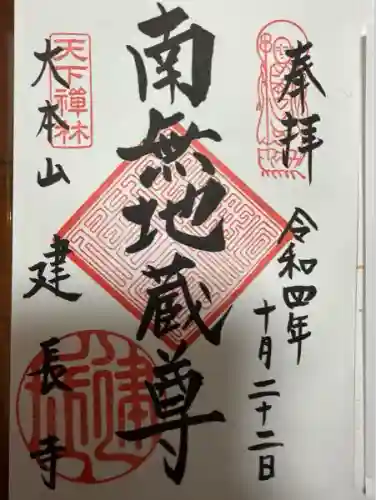 奉拝
令和四年
十月二十二日
南無地蔵尊
天下禅林
大本山
建長寺